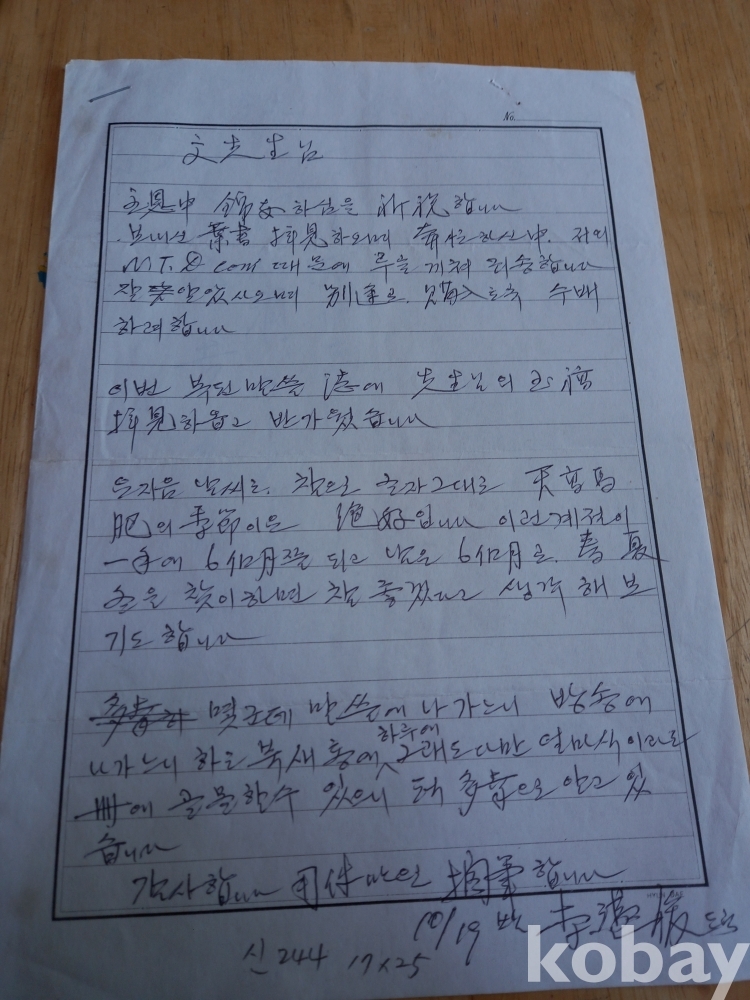 No.
文先生님
主恩中 錦安하심을 祈祝합니다
보내신 葉書 拜見하오며 奔忙하신中. 저의
M.T.D 때문에 루를 끼쳐 죄송합니다
잘 알았사오며 別途로. 購入토록 수배
하려합니다
이번 복된 말씀 誌에 先生님의 玉稿
拜見하옵고 반가웠습니다
요지음 날씨로. 참으로 글자그대로 天高馬
肥의 季節이은 絶好입니다 이런계절이
一年에 6個月쯤 되고 남은 6個月로. 春夏
冬을 찾이하면 참 좋겠다고 생각 해 보
기도 합니다
몇군데 말씀에 나가느니 방송에
나가느니 하는 북새통에, 하루에 그래도 다만 얼마식이라도
冊에 골몰할수 있으니 퍽 多幸으로 알고 있
습니다
감사합니다 用件만으로 擱筆합니다
10/19
신 244 17x25
kobay